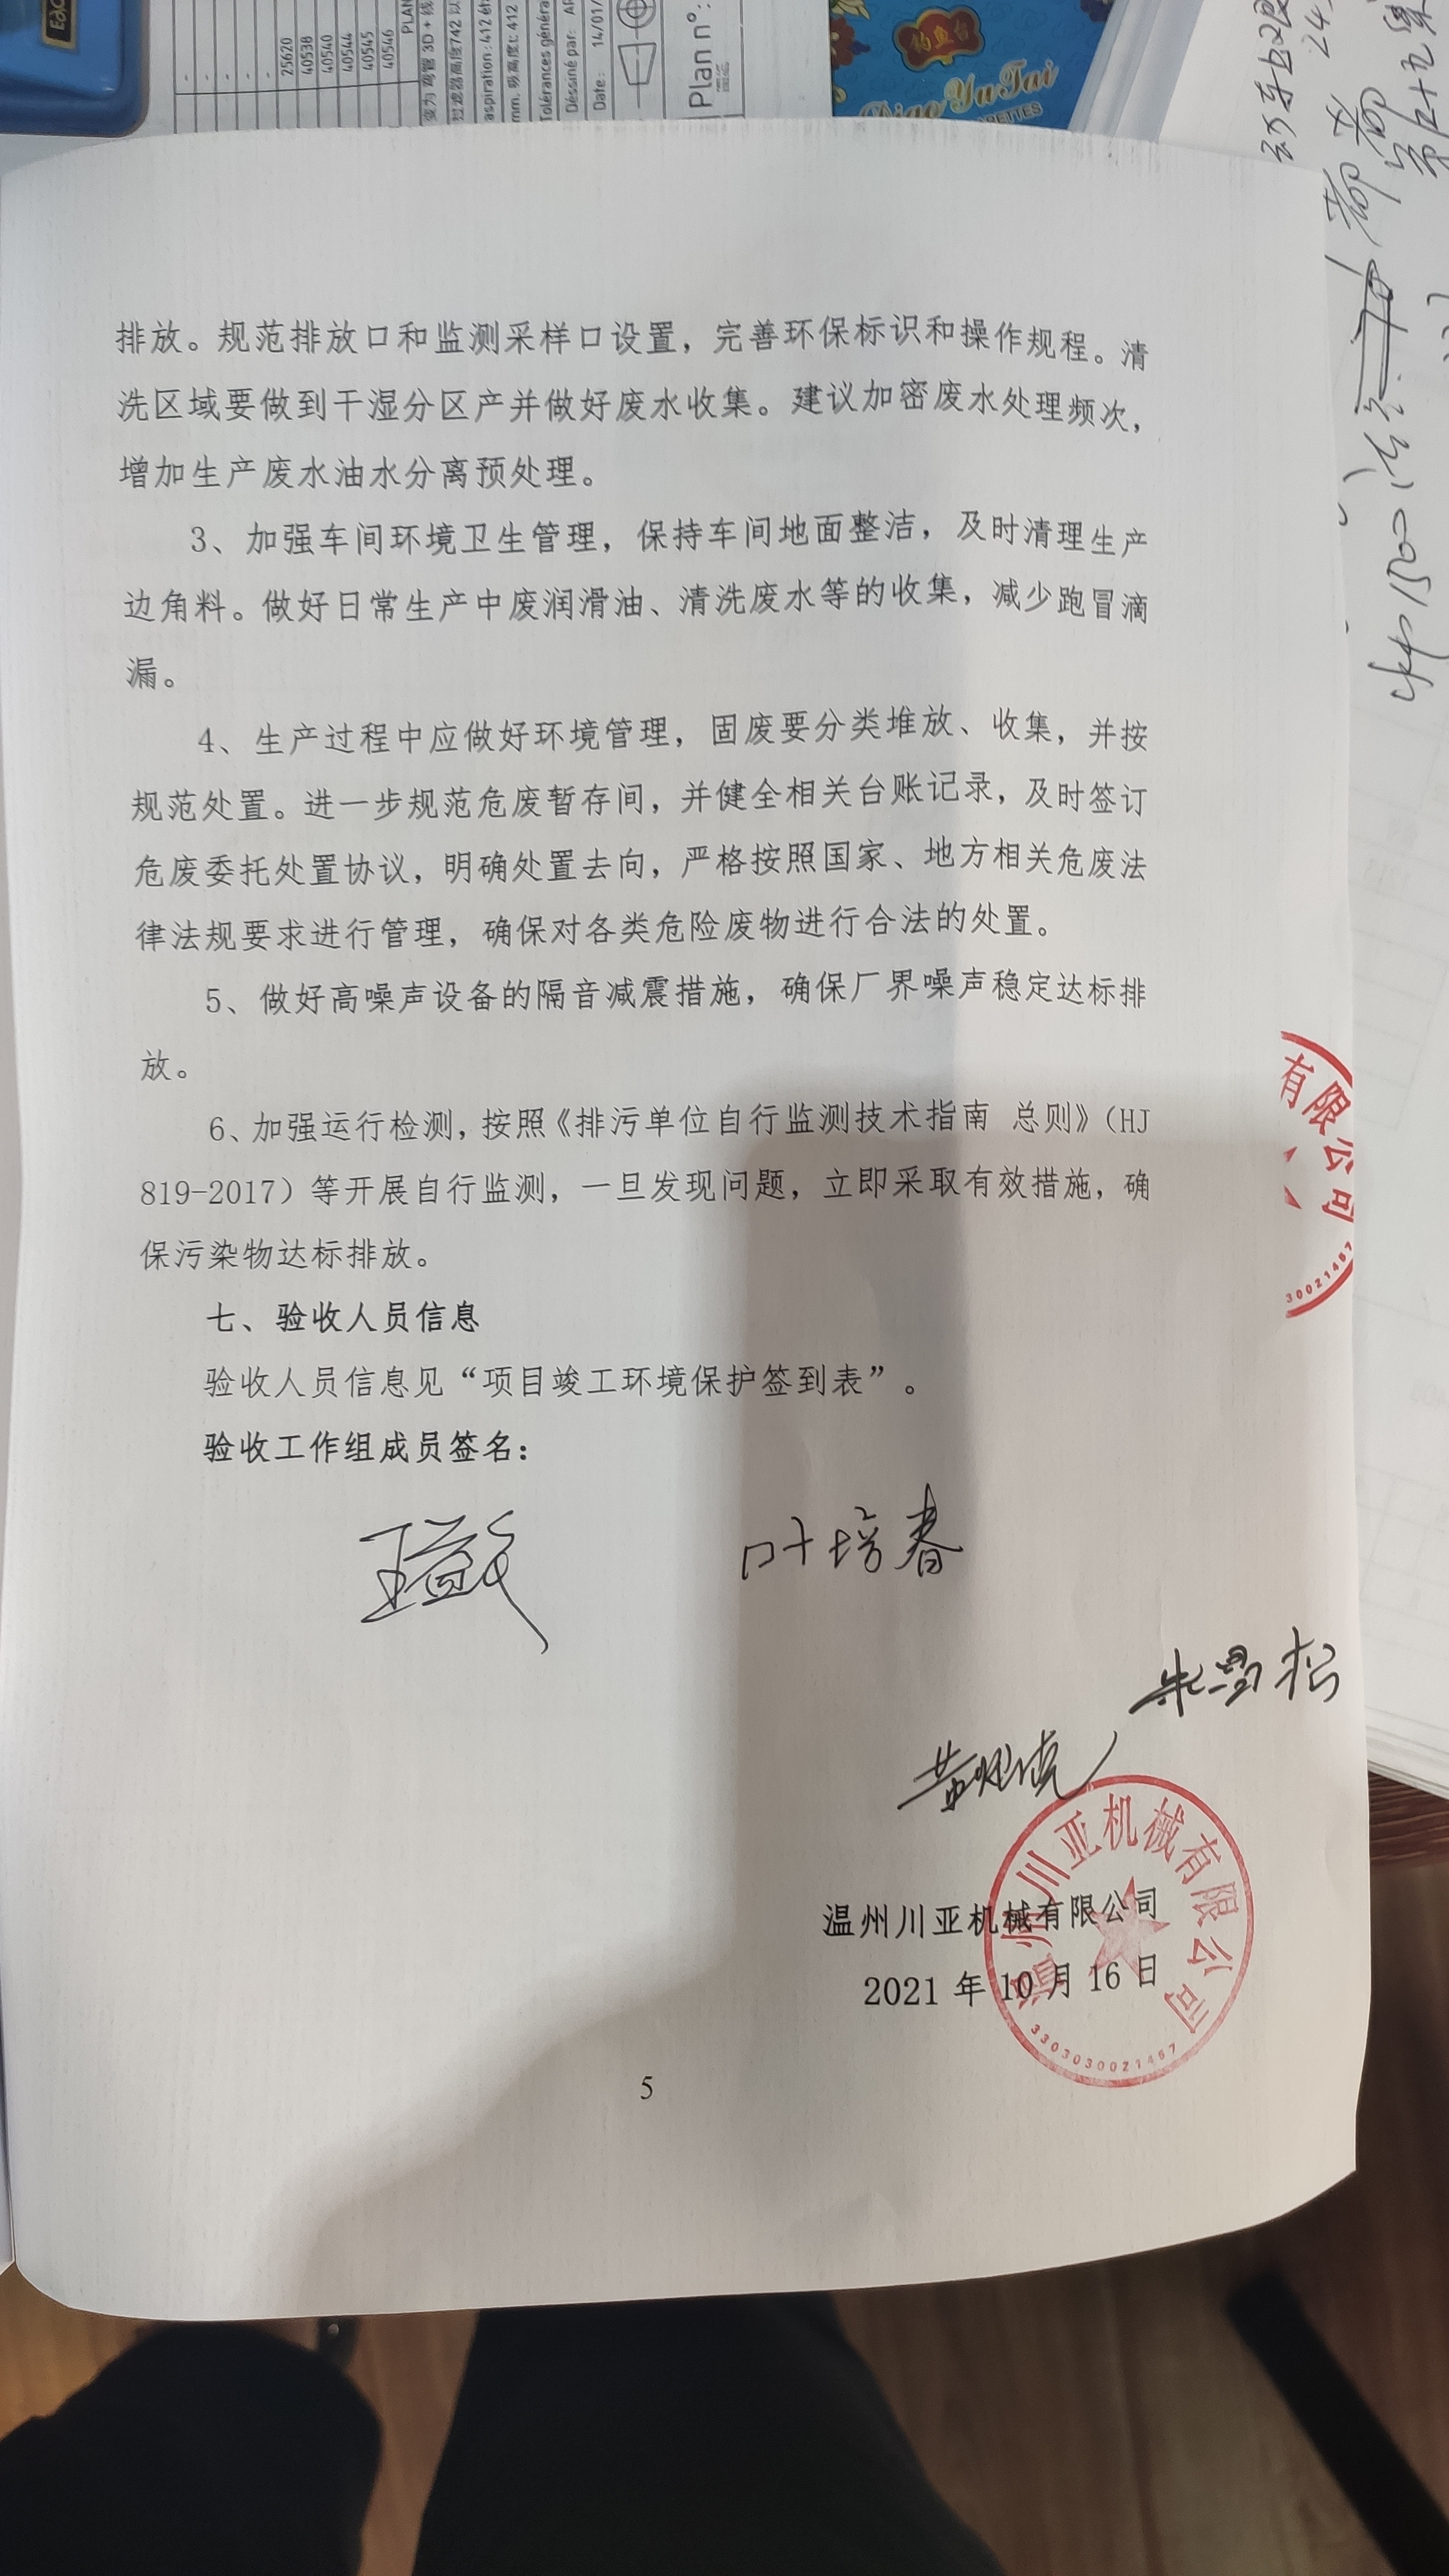 25620
40538
40540
40544
40545
40546
Date: 14/01/
Plan n°:
钓鱼台
Diao Yu Tai
排放。规范排放口和监测采样口设置，完善环保标识和操作规程。清
洗区域要做到干湿分区产并做好废水收集。建议加密废水处理频次，
增加生产废水油水分离预处理。
3、加强车间环境卫生管理，保持车间地面整洁，及时清理生产
边角料。做好日常生产中废润滑油、清洗废水等的收集，减少跑冒滴
漏。
4、生产过程中应做好环境管理，固废要分类堆放、收集，并按
规范处置。进一步规范危废暂存间，并健全相关台账记录，及时签订
危废委托处置协议，明确处置去向，严格按照国家、地方相关危废法
律法规要求进行管理，确保对各类危险废物进行合法的处置。
5、做好高噪声设备的隔音减震措施，确保厂界噪声稳定达标排
放。
6、加强运行检测，按照《排污单位自行监测技术指南 总则》（HJ
819-2017）等开展自行监测，一旦发现问题，立即采取有效措施，确
保污染物达标排放。
有限公司
30021457
七、验收人员信息
验收人员信息见“项目竣工环境保护签到表”。
验收工作组成员签名：
叶培春
温州川亚机械有限公司
2021 年 10 月 16 日
温州川亚机械有限公司
3303030021457
5